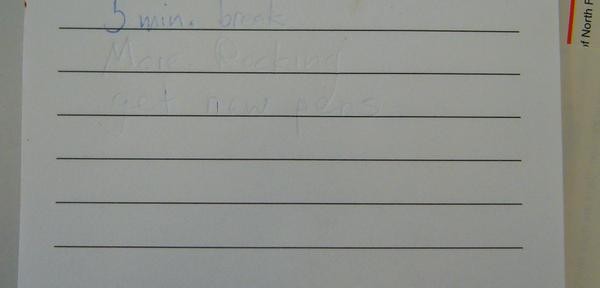 5 min. break
More Packing
get new pens
of North F